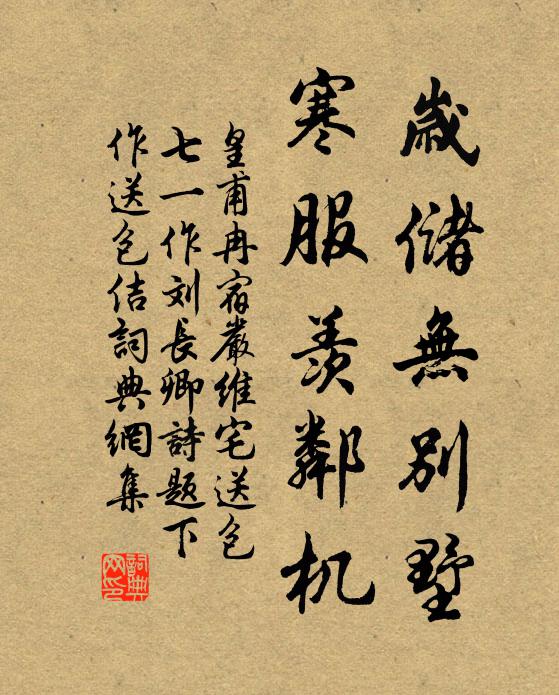 歲儲無別墅
寒服羨鄰机
皇甫冉宿嚴維宅送包
七一作刘長卿詩题下
作送包佶詞典網集
詞典网印